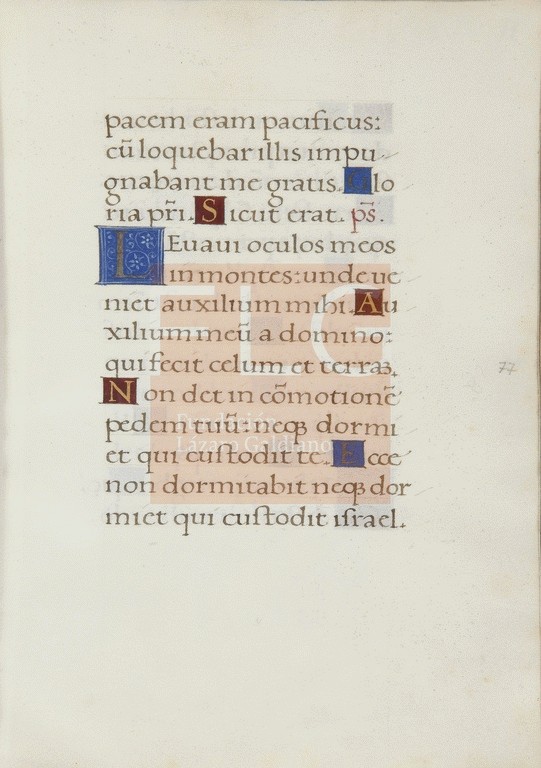 pacem eram pacificus:
cū loquebar illis impu
gnabant me gratis. Glo
ria pr̄i. Sicut erat. ps̄.
LEuaui oculos meos
in montes: unde ue
niet auxilium mihi. Au
xilium meū a domino:
qui fecit celum et terrā.
Non det in cōmotionē
pedem tuū: neqꝫ dormi
et qui custodit te. Ecce
non dormitabit neqꝫ dor
miet qui custodit israel.
77
FLG
Fundación
Lázaro Galdiano